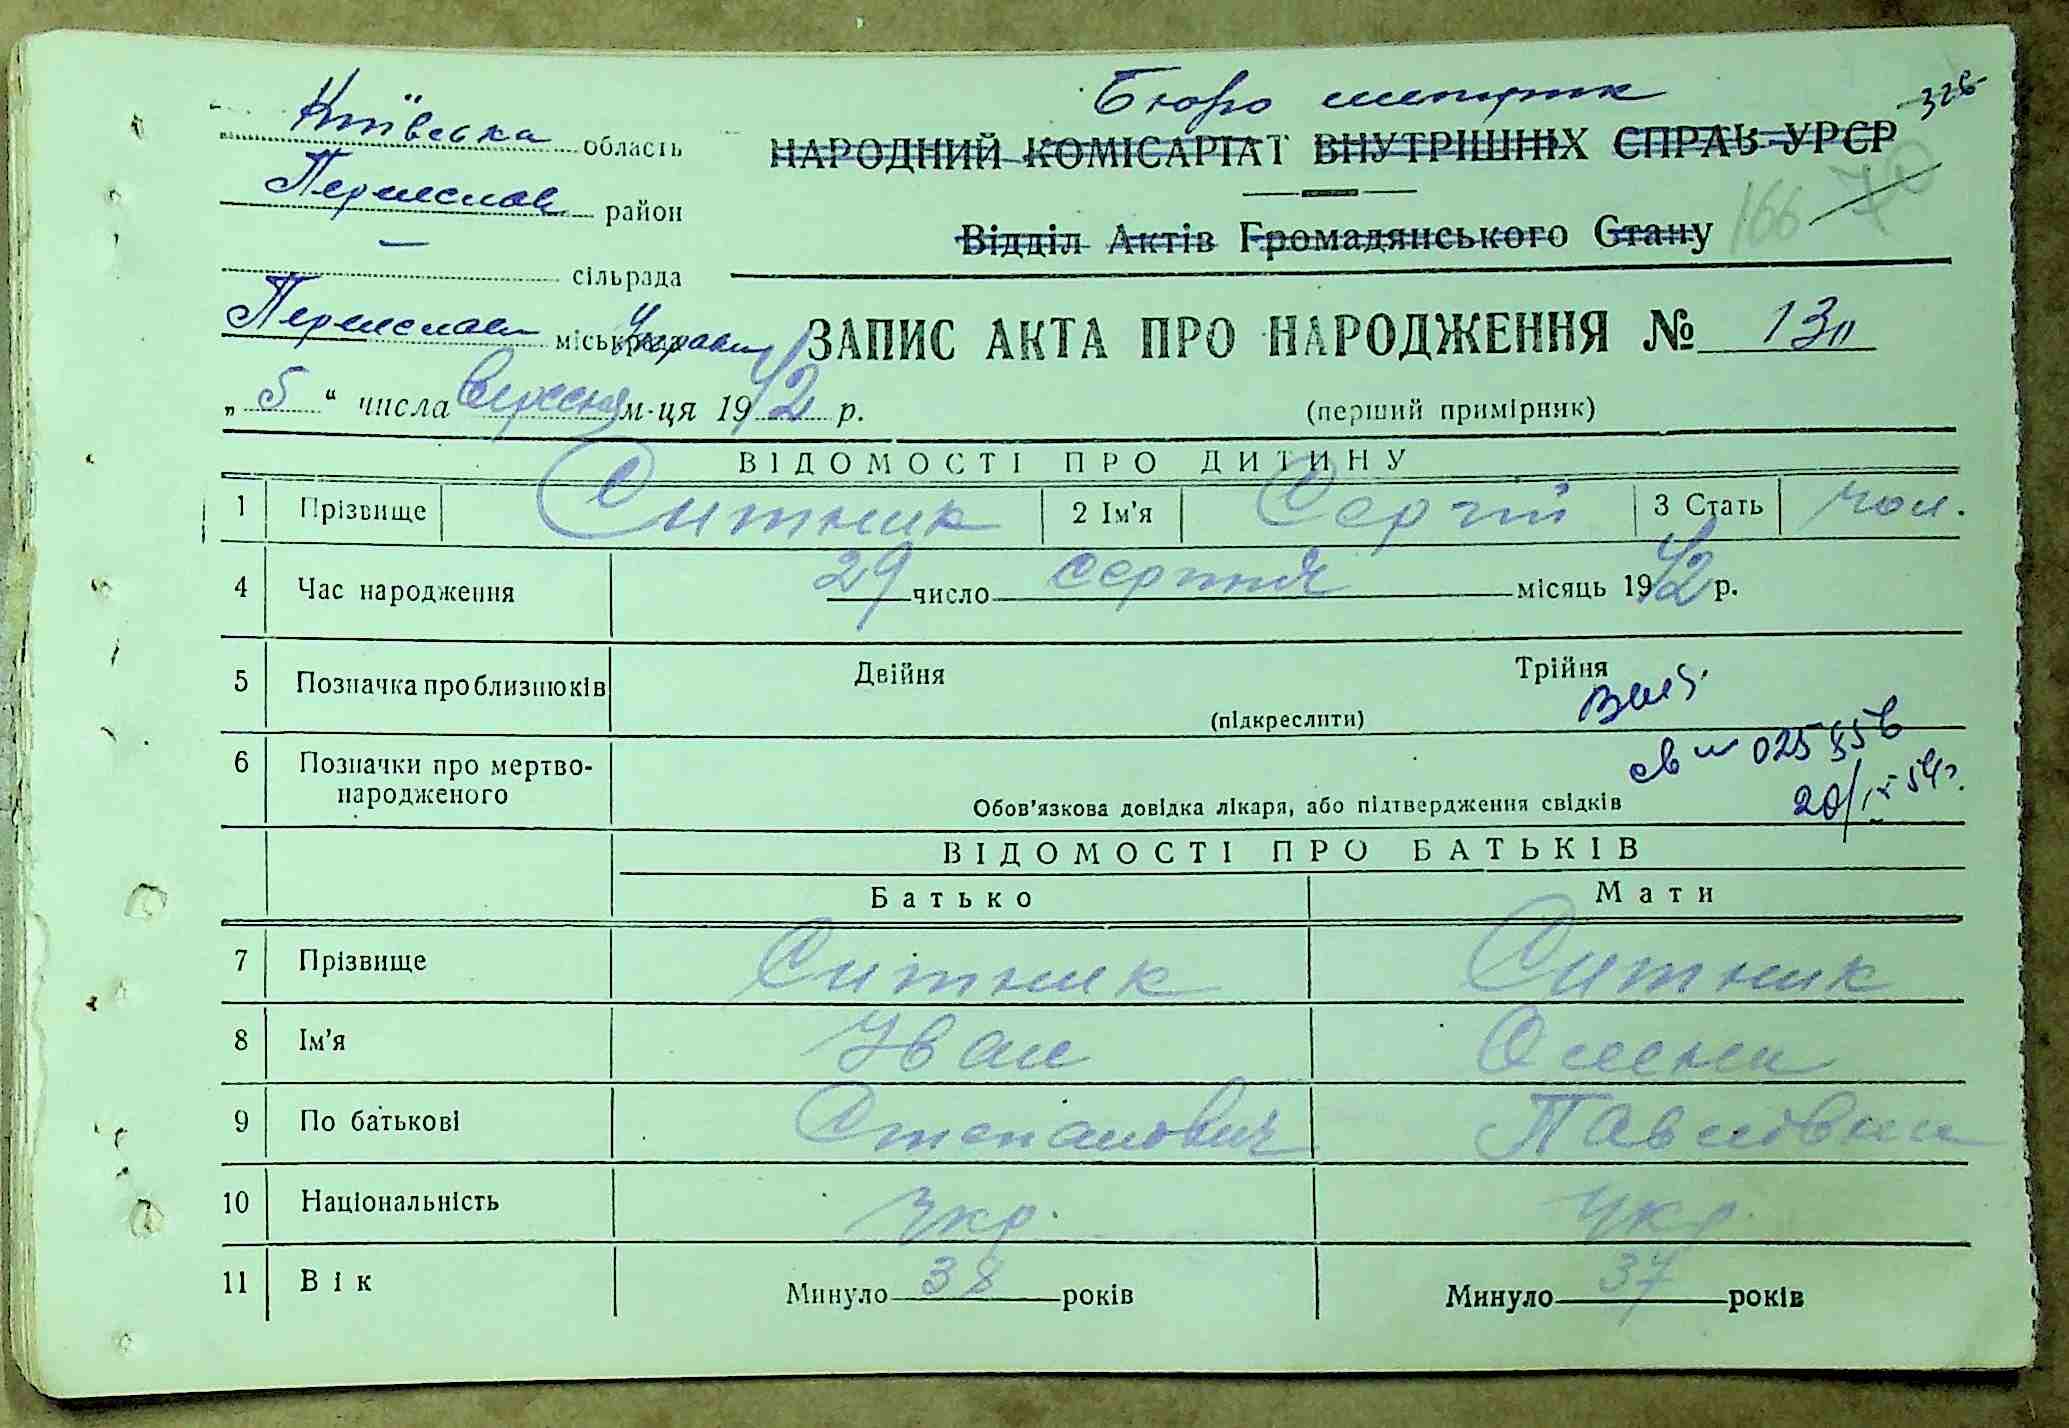 Київська область
Переяслав район
— сільрада
Переяслав міськрада управи
Бюро метрик
НАРОДНИЙ КОМІСАРІАТ ВНУТРІШНІХ СПРАВ УРСР
Відділ Актів Громадянського Стану
166 70
ЗАПИС АКТА ПРО НАРОДЖЕННЯ №
„5“ числа вересня м-ця 1942 р.
(перший примірник)
ВІДОМОСТІ ПРО ДИТИНУ
1 Прізвище Ситник 2 Ім'я Сергій 3 Стать чол.
4 Час народження 29 число серпня місяць 1942 р.
5 Позначка про близнюків Двійня Трійня
(підкреслити)
6 Позначки про мертвонародженого
Обов'язкова довідка лікаря, або підтвердження свідків
20/IX 54р.
ВІДОМОСТІ ПРО БАТЬКІВ
Батько Мати
7 Прізвище Ситник Ситник
8 Ім'я Іван Олена
9 По батькові Степанович Павлівна
10 Національність Укр. Укр.
11 Вік Минуло 38 років Минуло 37 років